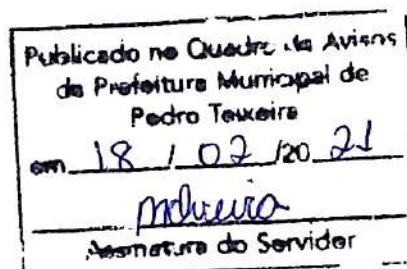 Publicado no Quadro de Avisos
da Prefeitura Municipal de
Pedro Teixeira
em 18 / 02 /20 21
Assinatura do Servidor